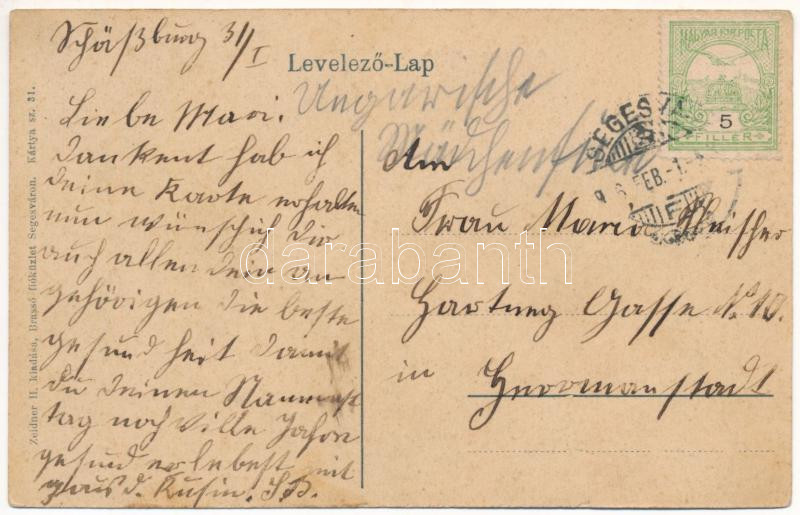 Schäßburg 31/I
Levelező-Lap
MAGYAR KIR. POSTA
5
FILLÉR
SEGESV
FEB.-1.
Ungarische
Liebe Mari.
Dankent hab ich
deine Karte erhalten
nun wünsch ich dir
auch allen dein an
gehörigen die beste
gesund heit damit
du deinen Namenst
tag noch ville Jahre
gesund erlebest mit
gruis d. Kusin. J.B.
An
Frau Maria Fleischer
Hartung Gasse No 10.
in
Herrmanstadt
Zeidner H. kiadása, Brassó fióküzlet Segesváron. Kártya sz. 31.
darabanth